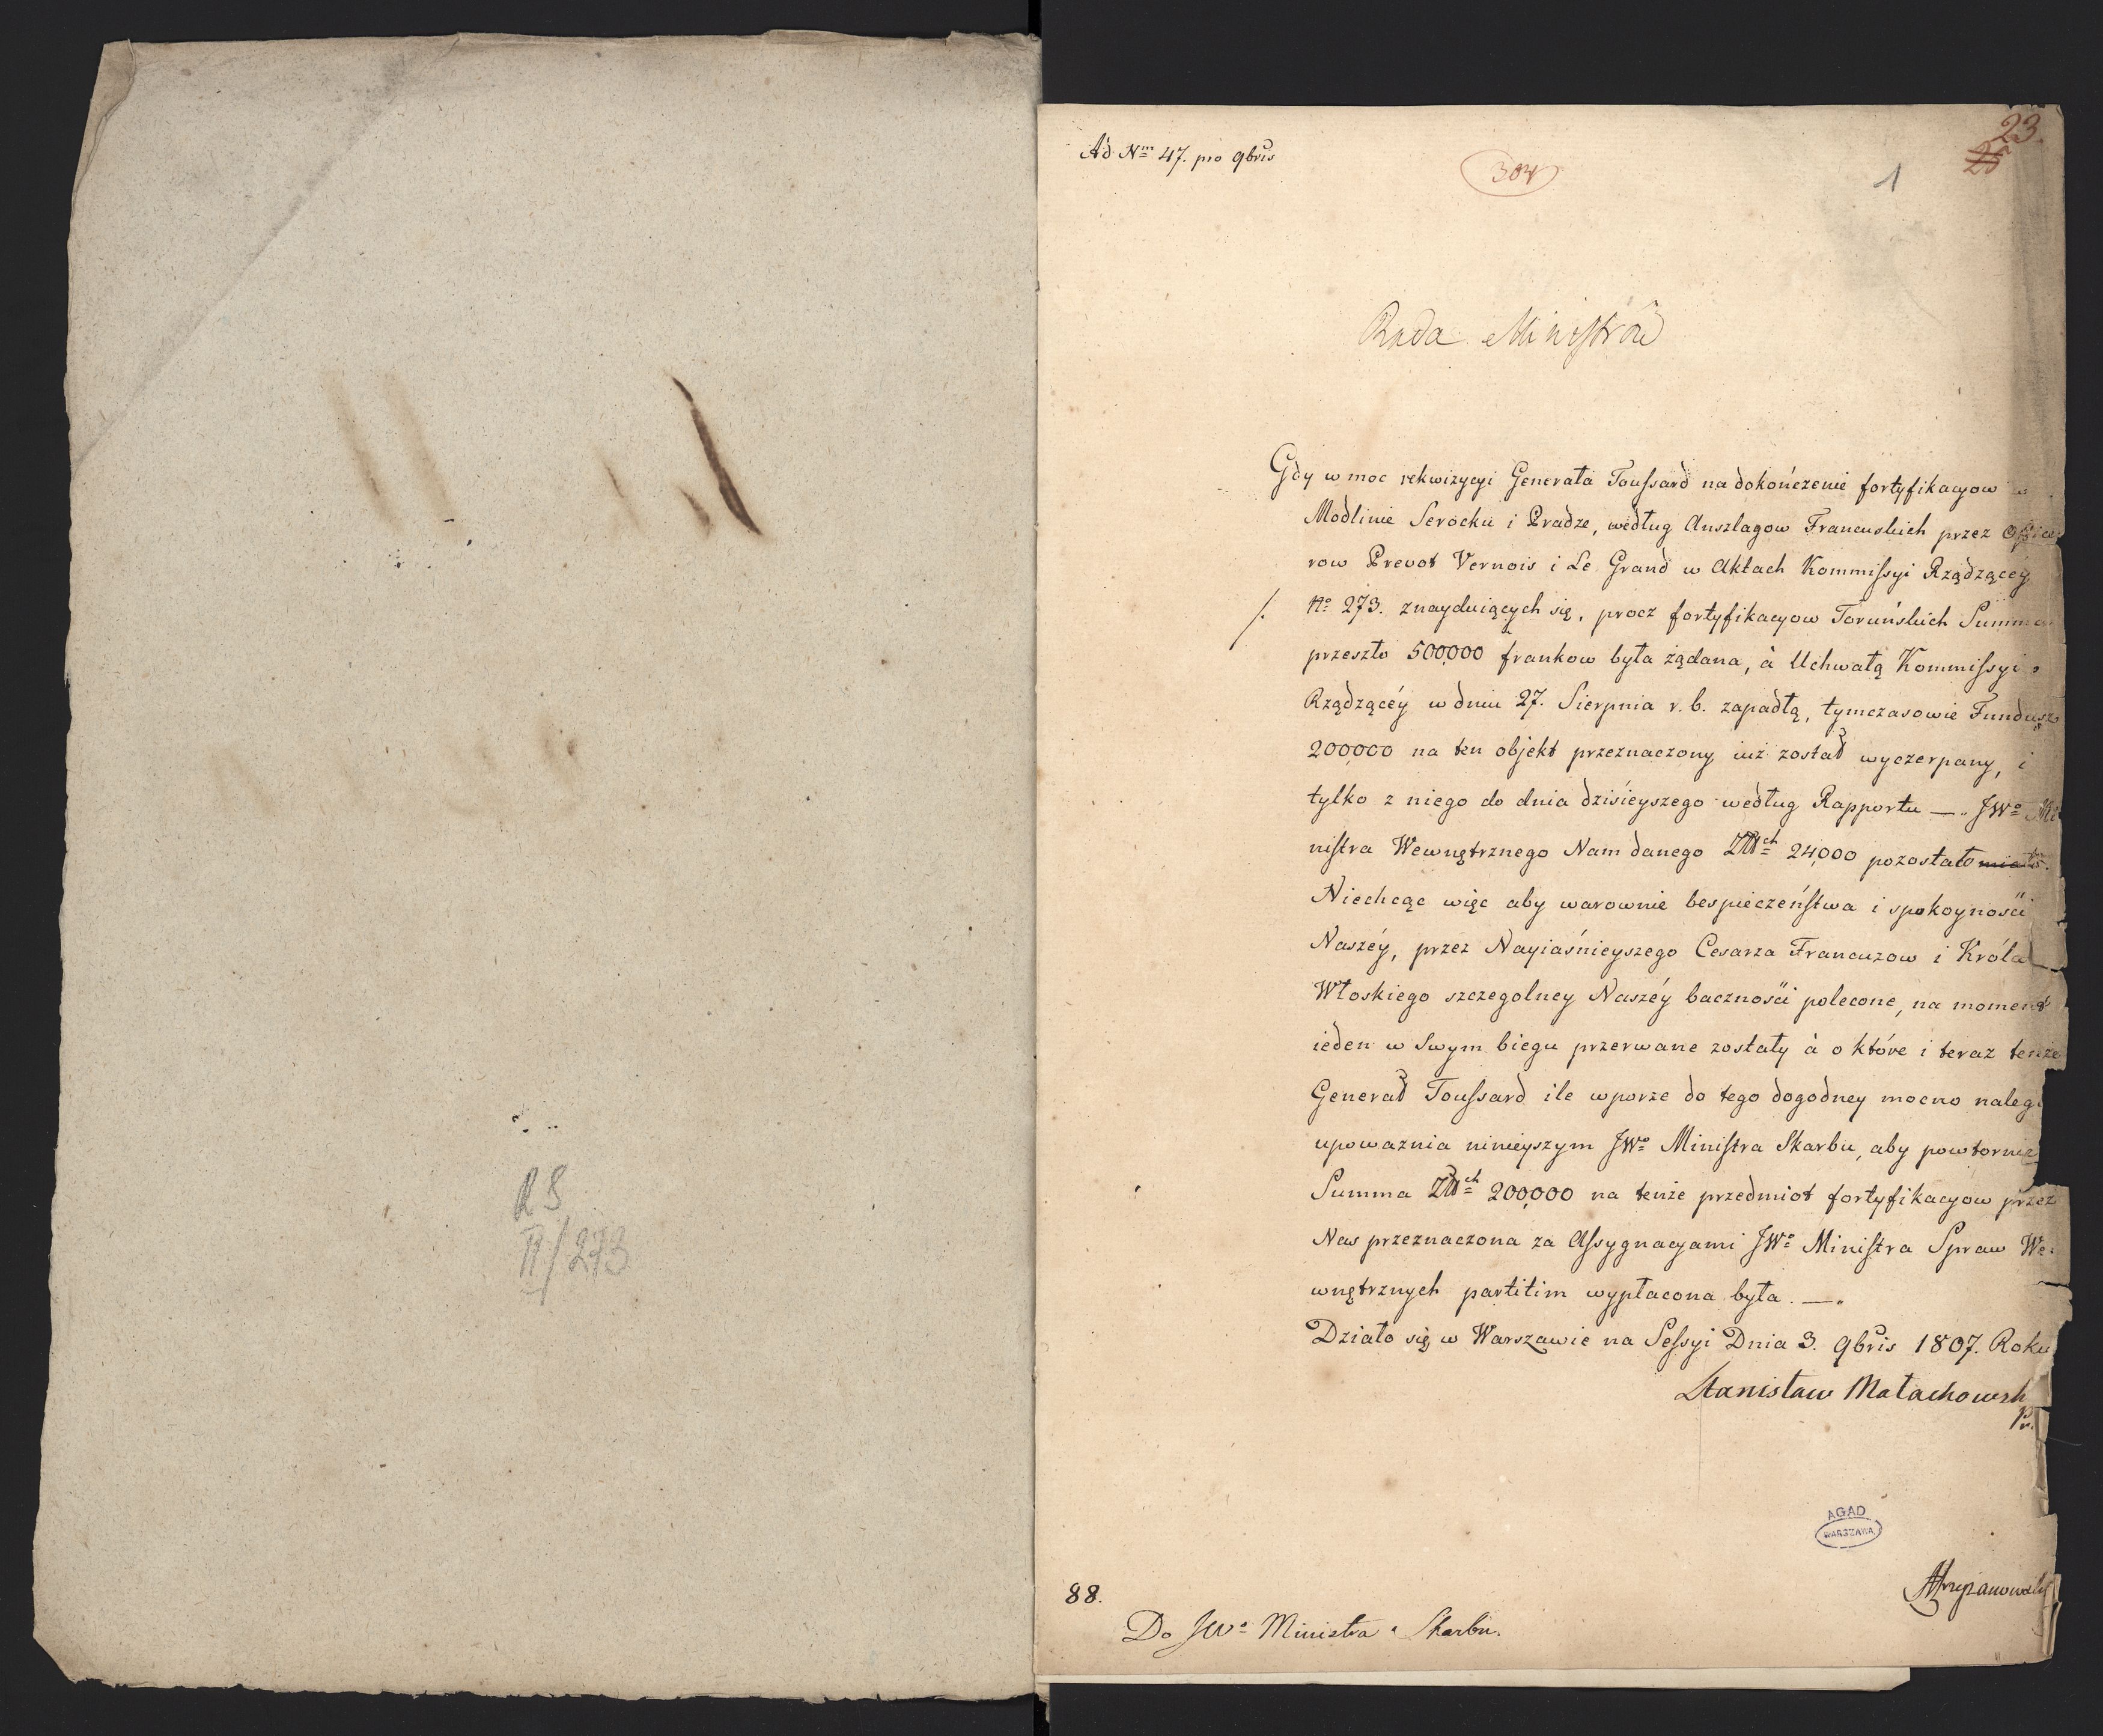 RS
II/273
Ad Nm 47. pro 9bris
304
1
23.
25
Rada Ministrów
Gdy w moc rekwizycyi Generała Toussard na dokończenie fortyfikacyow w
Modlinie Serocku i Pradze, według Anszlagow Francuskich przez Office
row Prevot Vernois i Le Grand w Aktach Kommissyi Rządzącéy
/. No 273. znayduiących się, procz fortyfikacyow Toruńskich Summa
przeszło 500,000 frankow była żądana, à Uchwałą Kommissyi
Rządzącéy w dniu 27. Sierpnia r. b. zapadłą, tymczasowie Fundusz
200,000 na ten objekt przeznaczony iuż został wyczerpany, i
tylko z niego do dnia dzisieyszego według Rapportu —. JWo Mi
nistra Wewnętrznego Nam danego Złłch 24,000 pozostało miało.
Niechcąc więc aby warownie bespieczeństwa i spokoyności
Naszéy, przez Nayiaśnieyszego Cesarza Francuzow i Króla
Włoskiego szczegolney Naszéy baczności polecone, na moment
ieden w Swym biegu przerwane zostały à o które i teraz tenże
Generał Toussard ile w porze do tego dogodney mocno nalega
upoważnia ninieyszym JWo Ministra Skarbu, aby powtornie
Summa Złłch 200,000 na tenże przedmiot fortyfikacyow przez
Nas przeznaczona za Assygnacyami JWo Ministra Spraw We-
wnętrznych partitim wypłacona była. —.
Działo się w Warszawie na Sessyi Dnia 3. 9bris 1807. Roku
Stanisław Małachowsk
Pr.
AGAD
WARSZAWA
88.
Do JWo Ministra Skarbu.